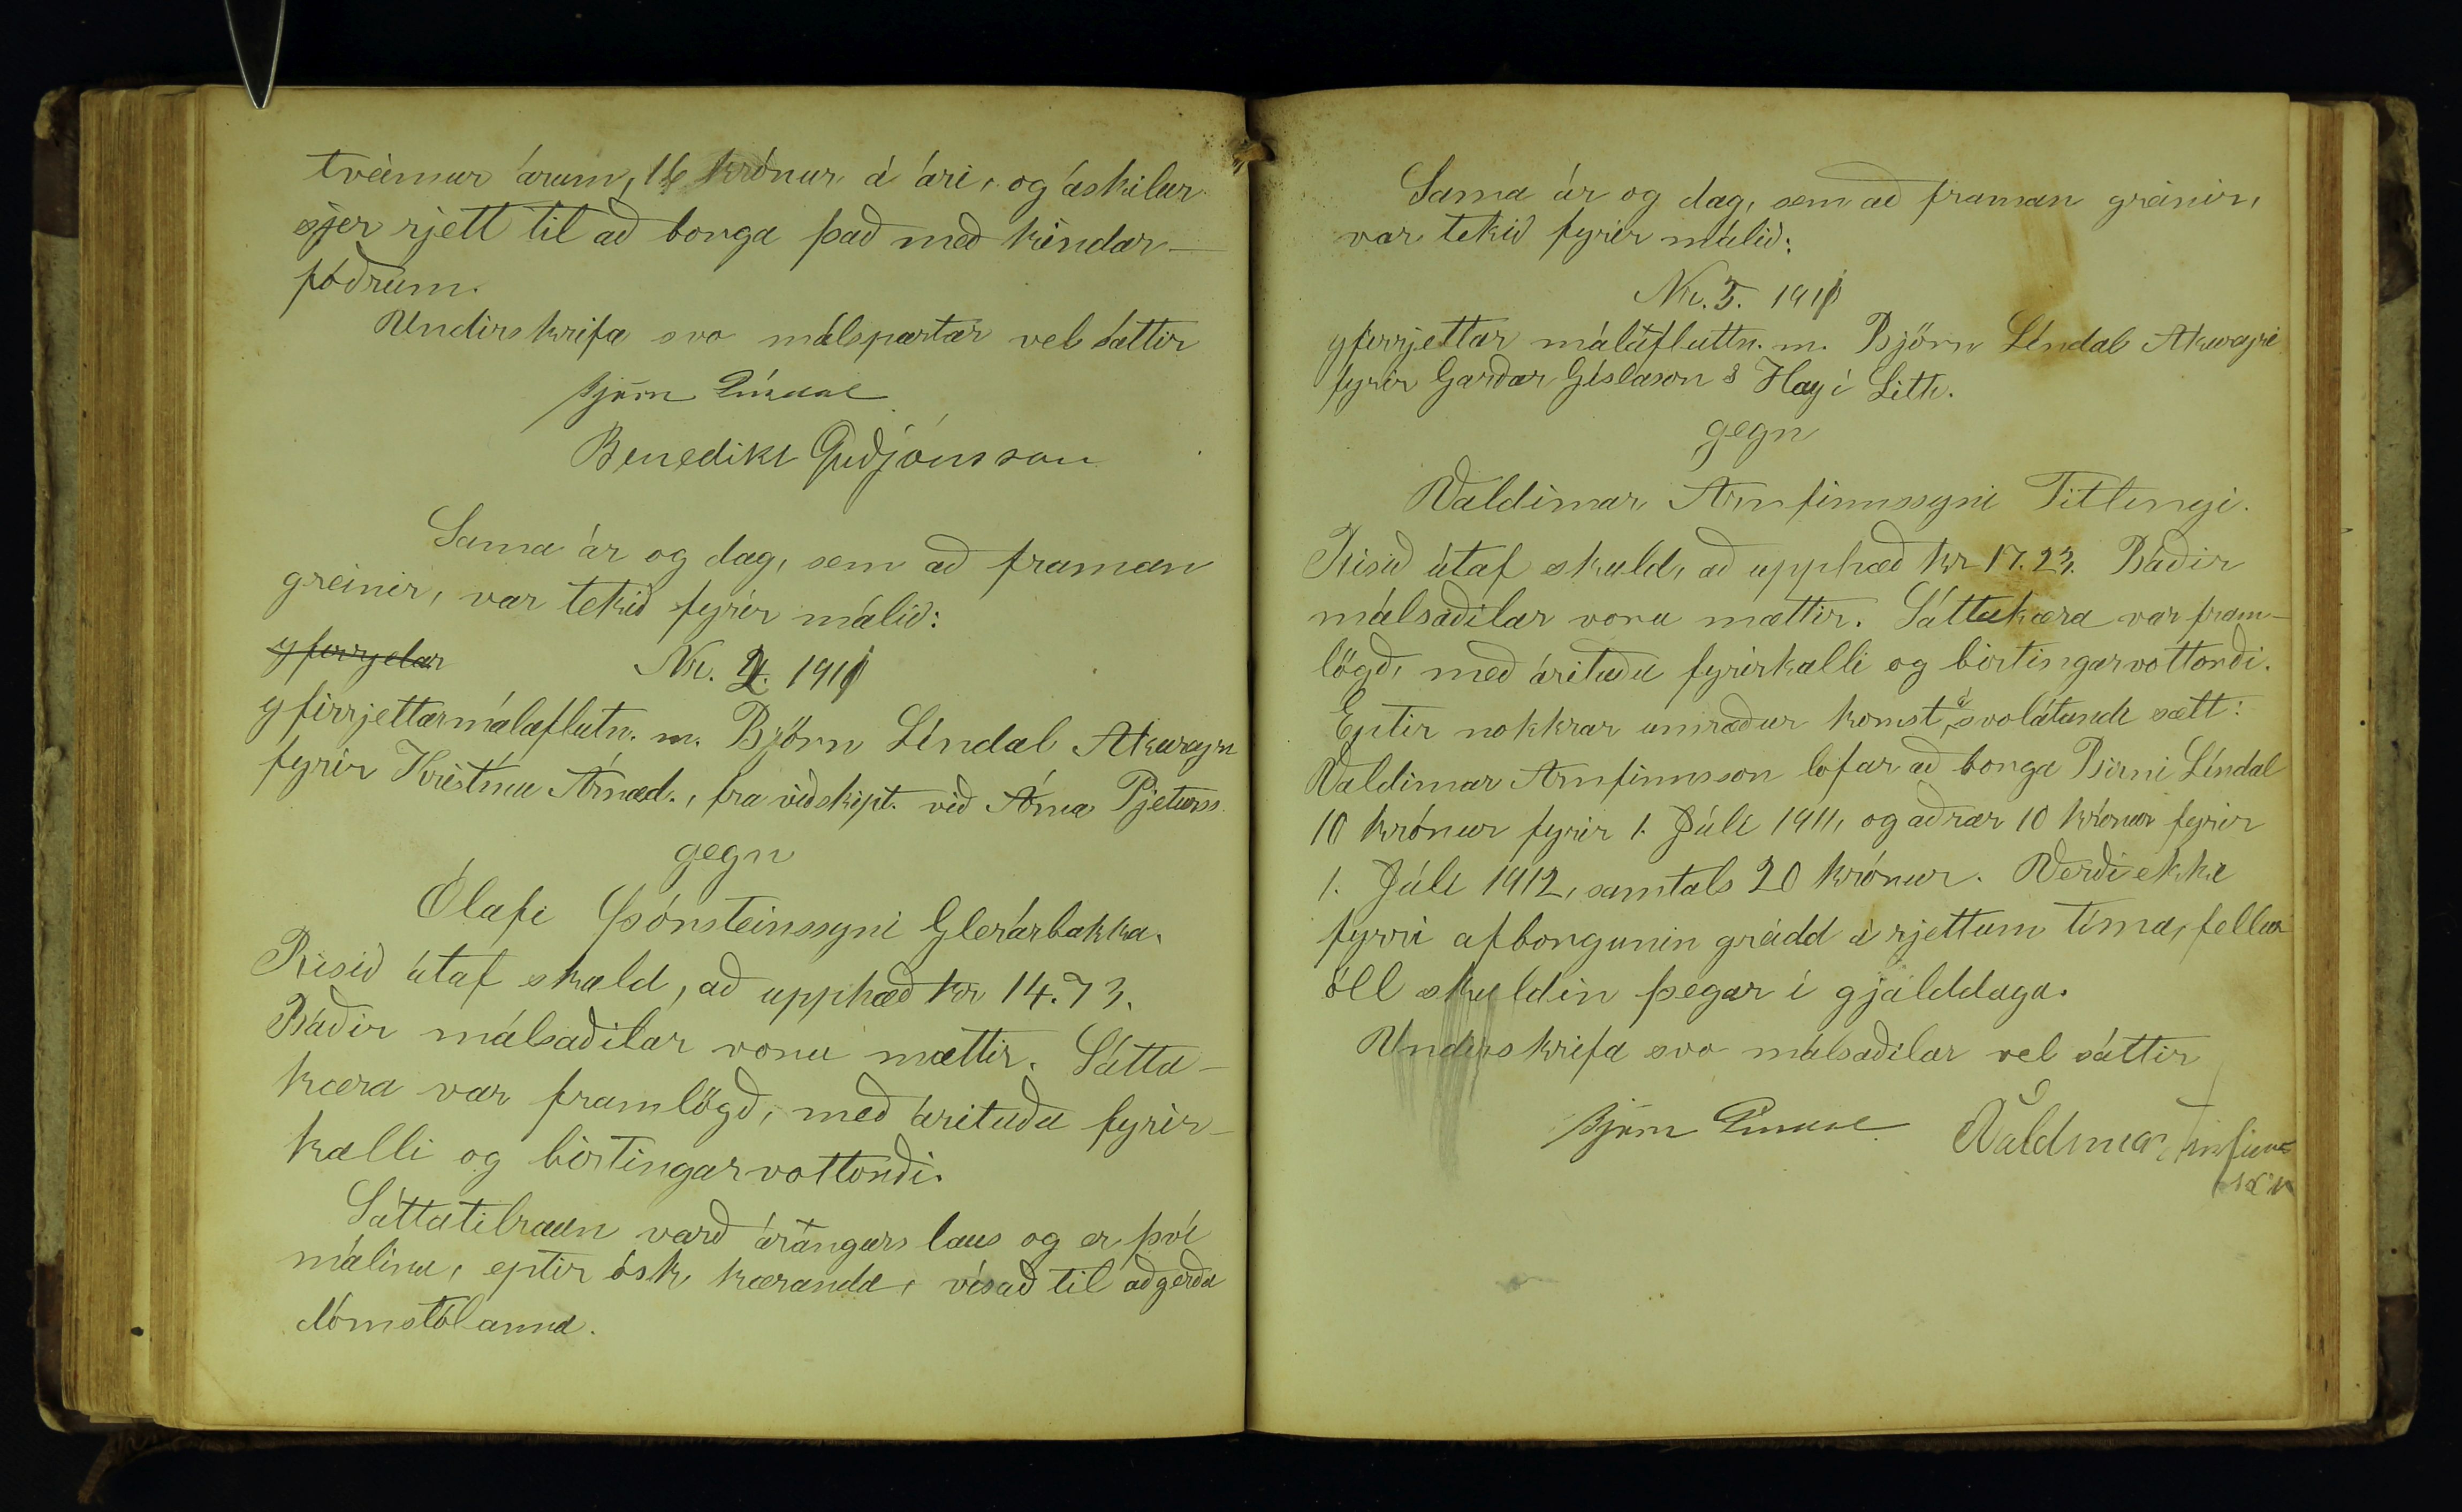 tveimur árum, 16 krónur á ári, og áskilur
sjer rjett til að borga það með kindar-
fóðrum.
Undirskrifa svo málspartar vel sáttir
Björn Líndal
Benedikt Guðjónsson
Sama ár og dag, sem að framan
greinir, var tekið fyrir málið:
yfirrjetar
Nr. 4. 1911
yfirrjettarmálaflutn. m. Björn Líndal Akureyri
fyrir Kristínu Árnad., fra viðskipt. við Árna Pjeturss.
gegn
Ólafi Þórsteinssyni Glerárbakka.
Risið útaf skuld, að upphæð kr 14.73.
Báðir málsaðilar voru mættir. Sátta-
kæra var framlögð, með árituðu fyrir-
kalli og birtingarvottorði.
Sáttatilraun varð árángurs laus og er því
málinu, eptir ósk kæranda, vísað til aðgerða
dómstólanna.
Sama ár og dag, sem að framan greinir,
var tekið fyrir málið:
Nr. 5. 1911
yfirrjettar málafluttn. m. Björn Líndal Akureyri
fyrir Garðar Gíslason & Hay í Lith.
gegn
Valdimar Arnfinnssyni Titlingi.
Risið útaf skuld, að upphæð kr 17.23. Báðir
málsaðilar voru mættir. Sáttakæra var fram-
lögð, með árituðu fyrirkalli og birtingarvottorði.
Eptir nokkrar umræður komst á svolátandi sætt:
Valdimar Arnfinnsson lofar að borga Birni Líndal
10 krónur fyrir 1. Júlí 1911, og aðrar 10 krónur fyrir
1. Júlí 1912, samtals 20 krónur. Verði ekki
fyrri afborgunin greidd á rjettum tíma, fellur
öll skuldin þegar í gjalddaga.
Undirskrifa svo málsaðilar vel sáttir
Björn Líndal Valdimar Arnfinns
son